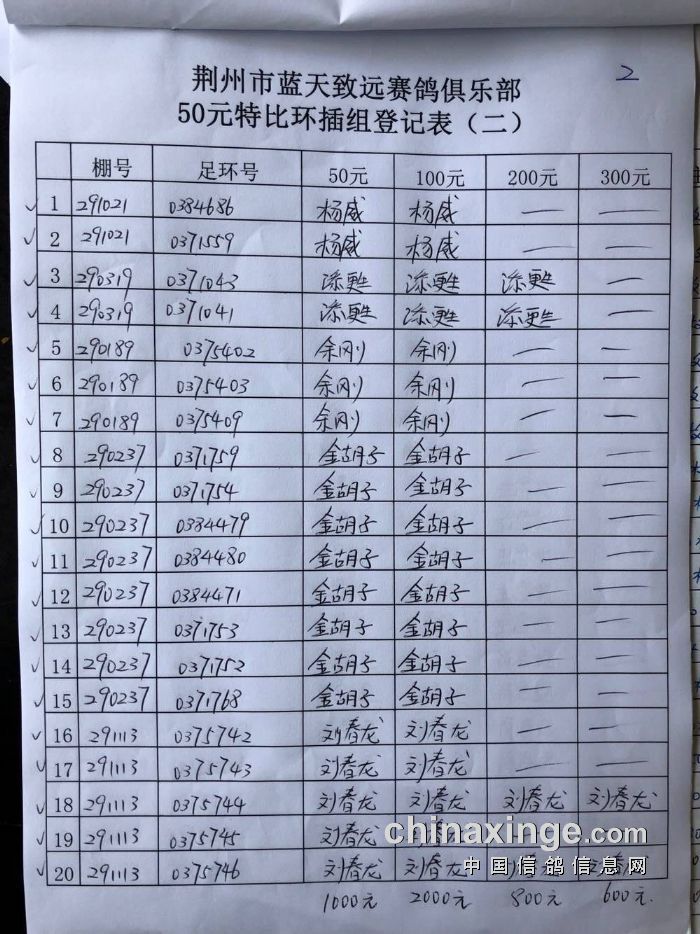 2
荆州市蓝天致远赛鸽俱乐部
50元特比环插组登记表（二）
棚号 足环号 50元 100元 200元 300元
✓ 1 291021 0384686 杨威 杨威 — —
✓ 2 291021 0371559 杨威 杨威 — —
✓ 3 290319 0371043 添更生 添更生 添更生 —
✓ 4 290319 0371041 添更生 添更生 添更生 —
✓ 5 290189 0375402 余刚 余刚 — —
✓ 6 290189 0375403 余刚 余刚 — —
✓ 7 290189 0375409 余刚 余刚 — —
✓ 8 290237 0371759 金胡子 金胡子 — —
✓ 9 290237 0371754 金胡子 金胡子 — —
✓ 10 290237 0384479 金胡子 金胡子 — —
✓ 11 290237 0384480 金胡子 金胡子 — —
✓ 12 290237 0384471 金胡子 金胡子 — —
✓ 13 290237 0371753 金胡子 金胡子 — —
✓ 14 290237 0371752 金胡子 金胡子 — —
✓ 15 290237 0371768 金胡子 金胡子 — —
✓ 16 291113 0375742 刘春龙 刘春龙 — —
✓ 17 291113 0375743 刘春龙 刘春龙 — —
✓ 18 291113 0375744 刘春龙 刘春龙 刘春龙 刘春龙
✓ 19 291113 0375745 刘春龙
chinaxinge.com
✓ 20 291113 0375746 刘春龙 刘春龙
中国信鸽信息网
1000元 2000元 800元 600元.